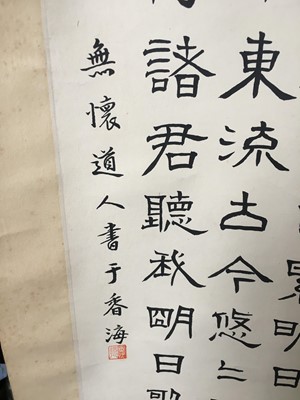 明日
東流古今悠〻
諸君聽我明日歌
無懷道人書于香海